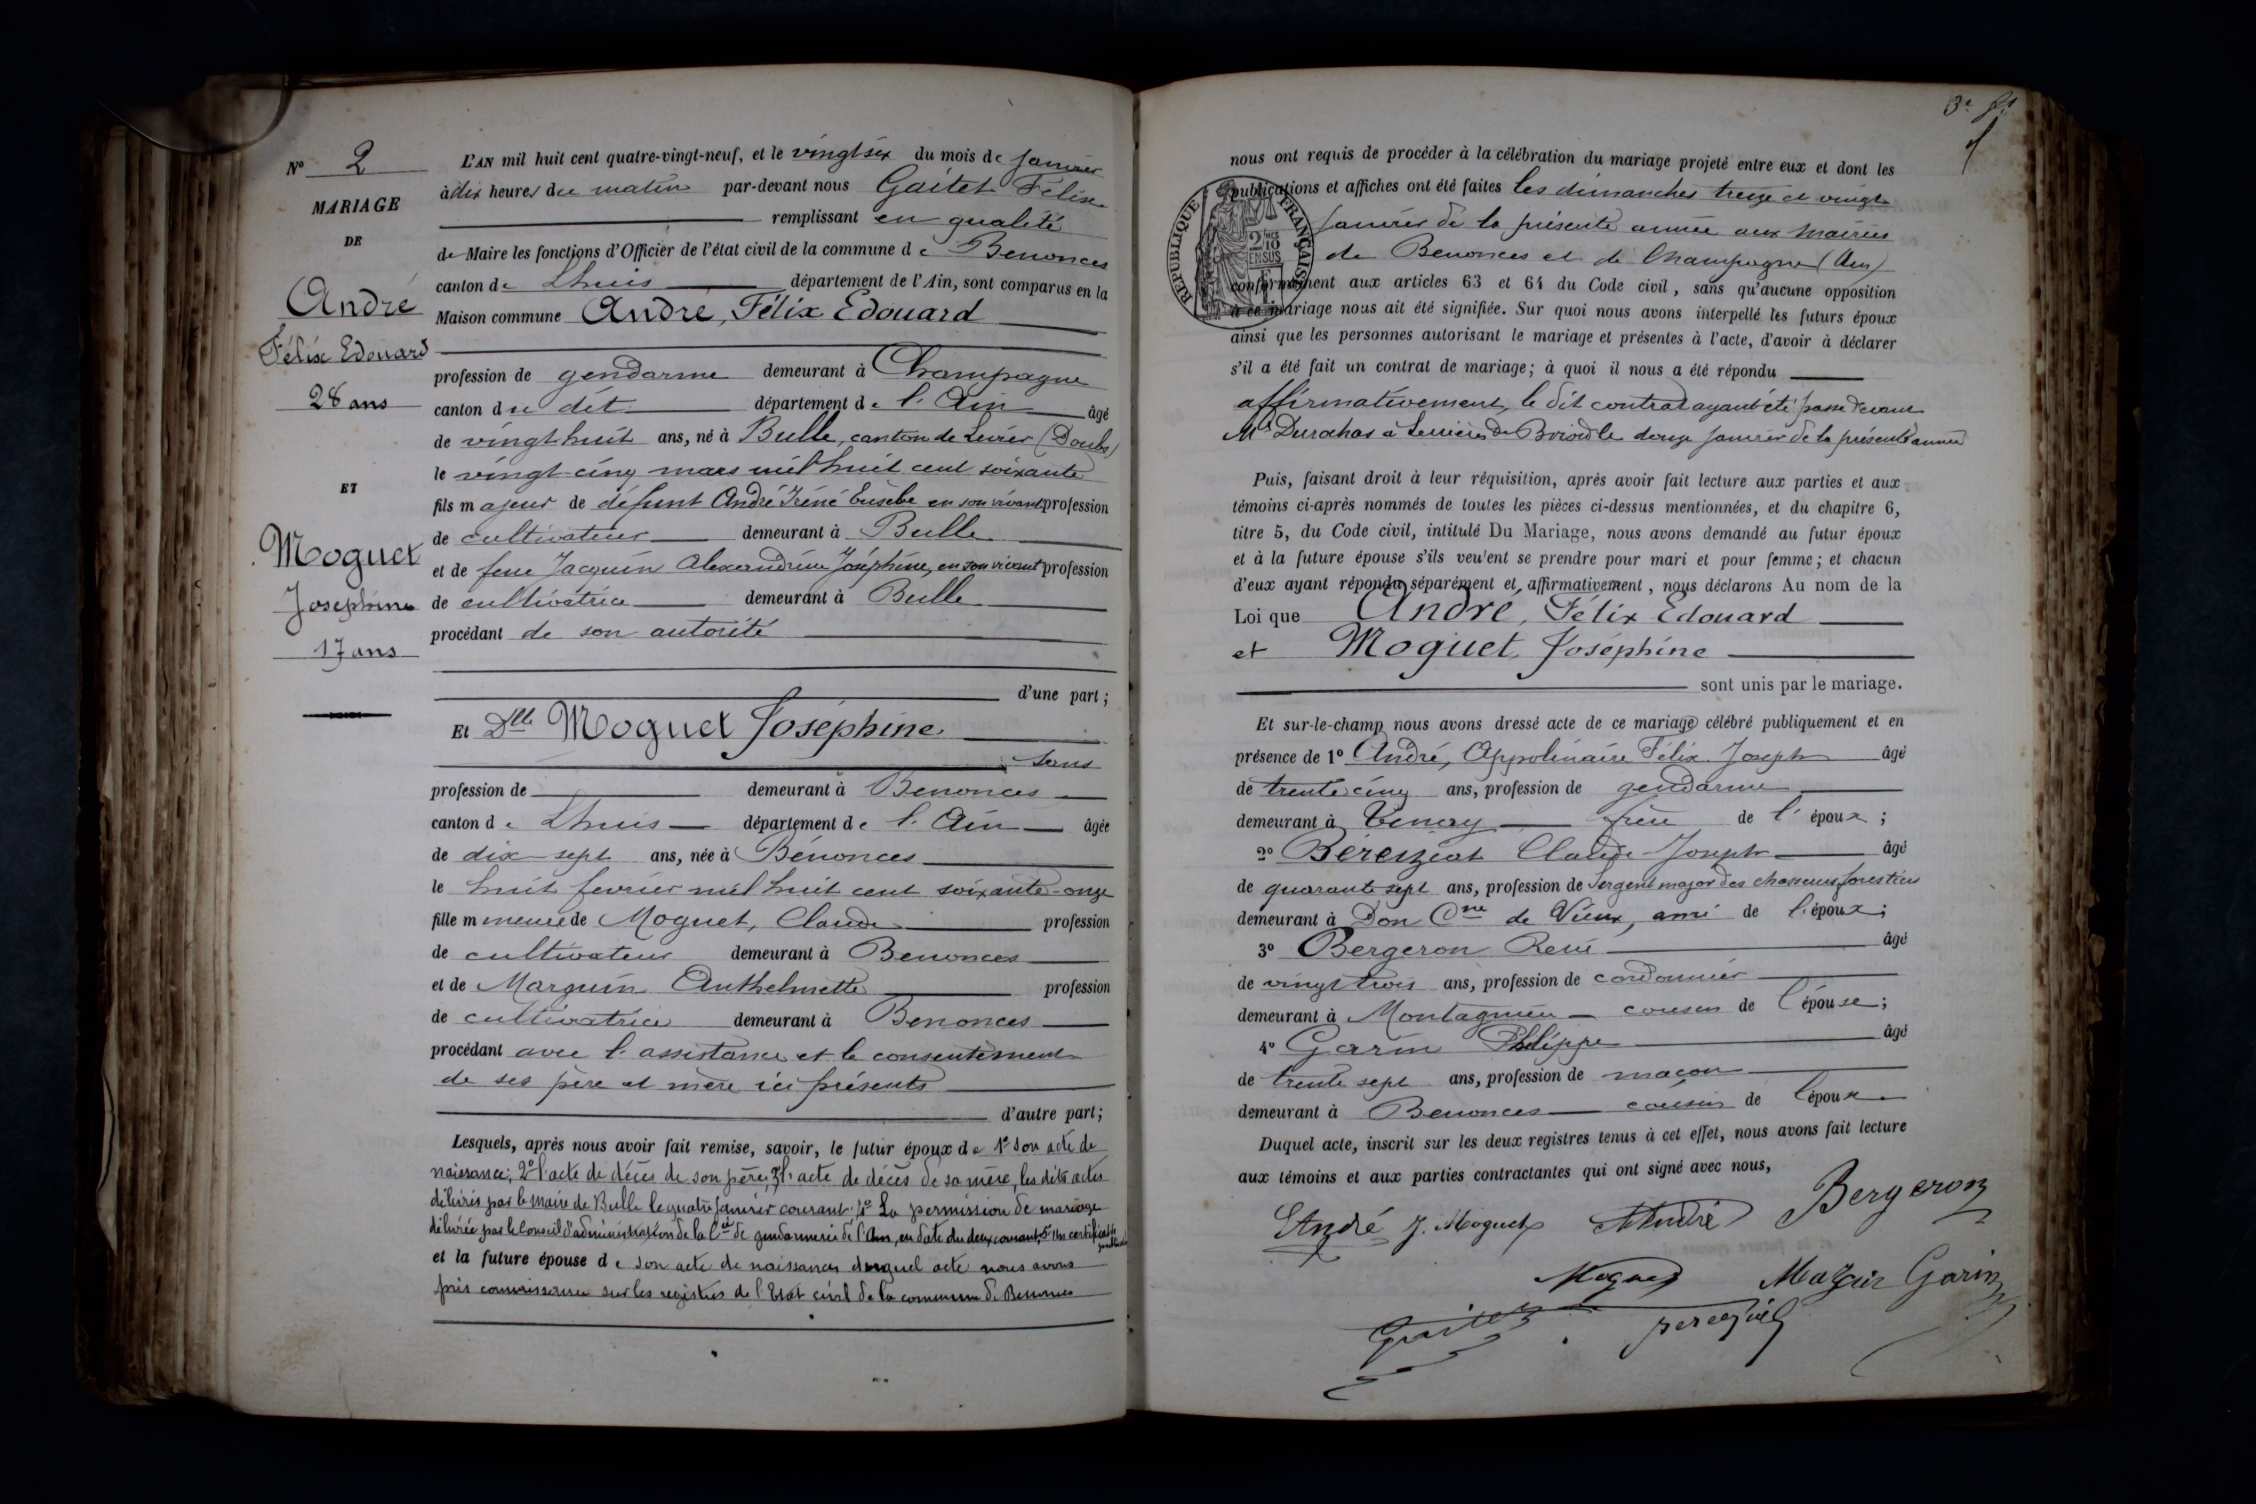 N° 2
MARIAGE
DE
André
Félix Edouard
28 ans
ET
Moguet
Joséphine
17 ans
L'AN mil huit cent quatre-vingt-neuf, et le vingt six du mois de Janvier
à dix heures du matin par-devant nous Gaitet Félix
remplissant en qualité
de Maire les fonctions d'Officier de l'état civil de la commune de Benonces
canton de Lhuis département de l'Ain, sont comparus en la
Maison commune André, Félix Edouard
profession de gendarme demeurant à Champagne
canton du dit département de l'Ain âgé
de vingt huit ans, né à Bulle, canton de Levier (Doubs)
le vingt-cinq mars mil huit cent soixante
fils majeur de défunt André Iréné Eusèbe en son vivant profession
de cultivateur demeurant à Bulle
et de feue Jacquin Alexandrine Joséphine, en son vivant profession
de cultivatrice demeurant à Bulle
procédant de son autorité
d'une part;
Et Dlle Moguet Joséphine
sans
profession de demeurant à Benonces
canton de Lhuis département de l'Ain âgée
de dix-sept ans, née à Bénonces
le huit fevrier mil huit cent soixante-onze
fille mineure de Moguet, Claude profession
de cultivateur demeurant à Benonces
et de Marguin Anthelmette profession
de cultivatrice demeurant à Benonces
procédant avec l'assistance et le consentement
de ses père et mère ici présents
d'autre part;
Lesquels, après nous avoir fait remise, savoir, le futur époux de 1° son acte de
naissance; 2° l'acte de décès de son père; 3° l'acte de décès de sa mère, les dits actes
délivrés par le Maire de Bulle le quatre janvier courant; 4° La permission de mariage
délivrée par le Conseil d'administration de la Cie de gendarmerie de l'Ain, en date du deux courant, 5° Un certificat de
et la future épouse de son acte de naissance duquel acte nous avons
pris connaissance sur les registres de l'Etat civil de la commune de Benonces
3e
nous ont requis de procéder à la célébration du mariage projeté entre eux et dont les
publications et affiches ont été faites les dimanches treize et vingt
Janvier de la présente année aux Mairies
de Benonces et de Champagne (Ain)
RÉPUBLIQUE FRANÇAISE
2/10 EN SUS
conformément aux articles 63 et 64 du Code civil, sans qu'aucune opposition
à ce mariage nous ait été signifiée. Sur quoi nous avons interpellé les futurs époux
ainsi que les personnes autorisant le mariage et présentes à l'acte, d'avoir à déclarer
s'il a été fait un contrat de mariage; à quoi il nous a été répondu
affirmativement, le dit contrat ayant été passé devant
Me à Serrières de Briord le douze janvier de la présente année
Puis, faisant droit à leur réquisition, après avoir fait lecture aux parties et aux
témoins ci-après nommés de toutes les pièces ci-dessus mentionnées, et du chapitre 6,
titre 5, du Code civil, intitulé Du Mariage, nous avons demandé au futur époux
et à la future épouse s'ils veulent se prendre pour mari et pour femme; et chacun
d'eux ayant répondu séparément et affirmativement, nous déclarons Au nom de la
Loi que André, Félix Edouard
et Moguet Joséphine
sont unis par le mariage.
Et sur-le-champ nous avons dressé acte de ce mariage célébré publiquement et en
présence de 1° André, Appolinaire Félix Joseph âgé
de trente cinq ans, profession de gendarme
demeurant à Tenay frère de l'époux;
2° Béreiziat Claude Joseph âgé
de quarante sept ans, profession de Sergent major des chasseurs forestiers
demeurant à Don Cne de Vieux, ami de l'époux;
3° Bergeron René âgé
de vingt trois ans, profession de cordonnier
demeurant à Montagnieu cousin de l'épouse;
4° Garin Philippe âgé
de trente sept ans, profession de maçon
demeurant à Benonces cousin de l'époux
Duquel acte, inscrit sur les deux registres tenus à cet effet, nous avons fait lecture
aux témoins et aux parties contractantes qui ont signé avec nous,
EAndré J. Moguet André Bergeron
Moguet Garin
Gaitet